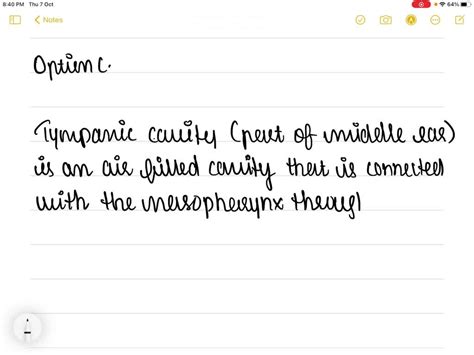 8:40 PM Thu 7 Oct
64%
Notes
Option C.
Tympanic cavity (part of middle ear)
is an air filled cavity that is connected
with the nasopharynx throug